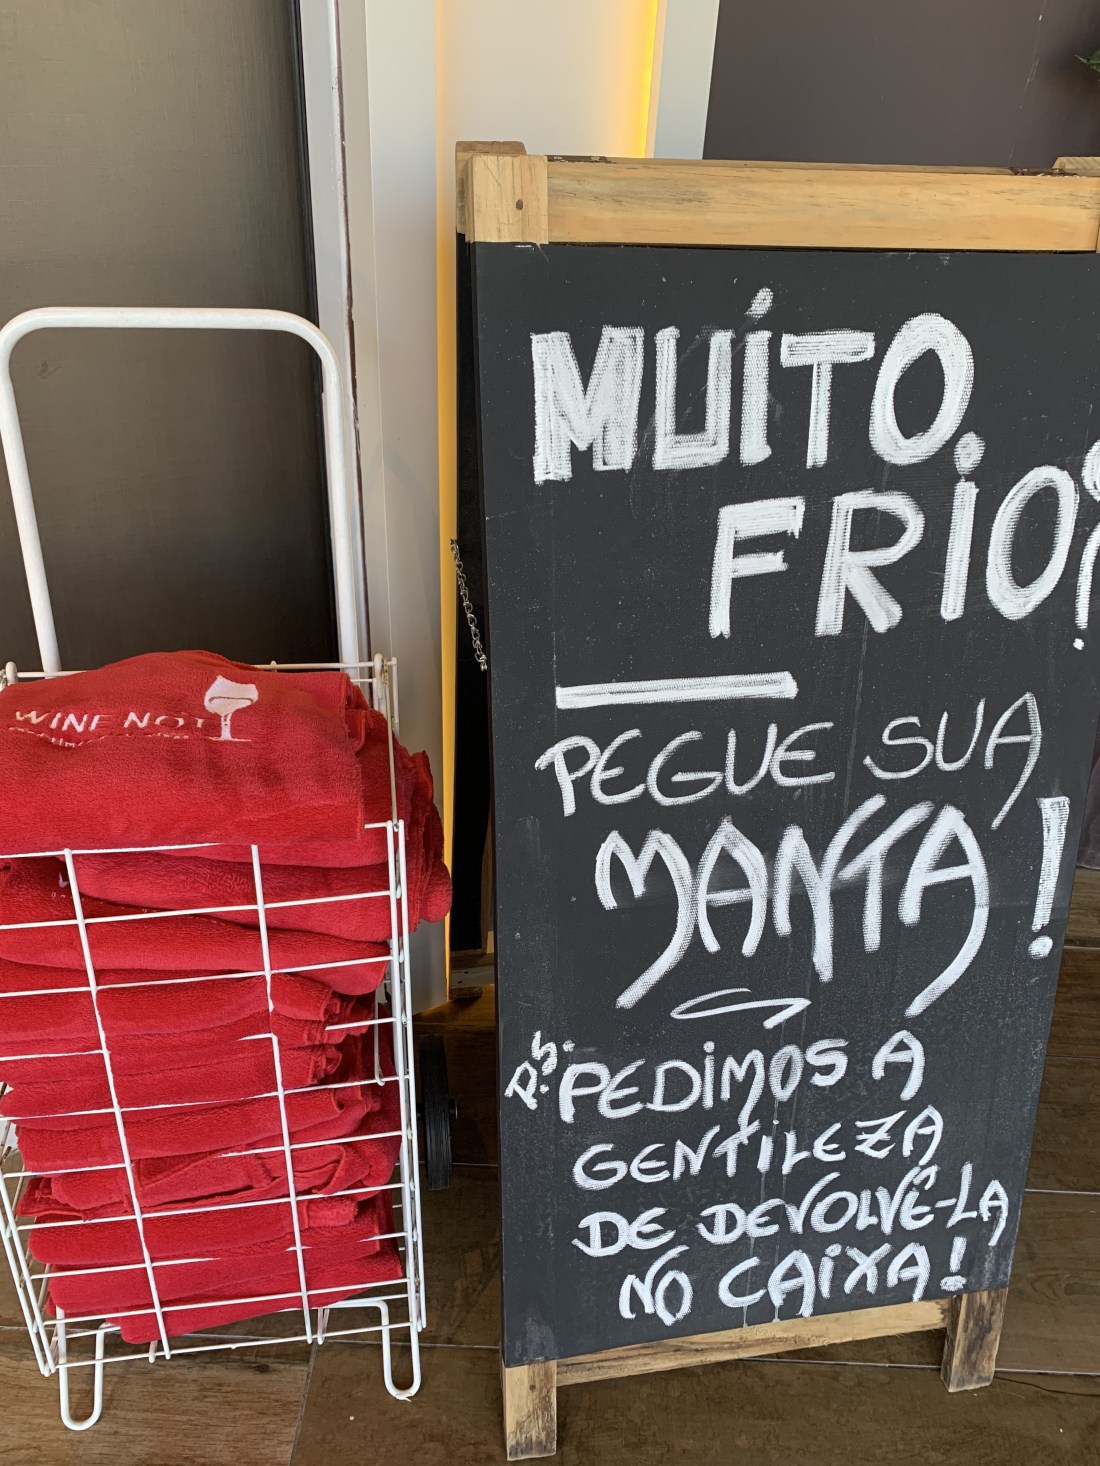 MUITO
FRIO?
PEGUE SUA
MANTA!
P.S. PEDIMOS A
GENTILEZA
DE DEVOLVÊ-LA
NO CAIXA!
WINE NOT